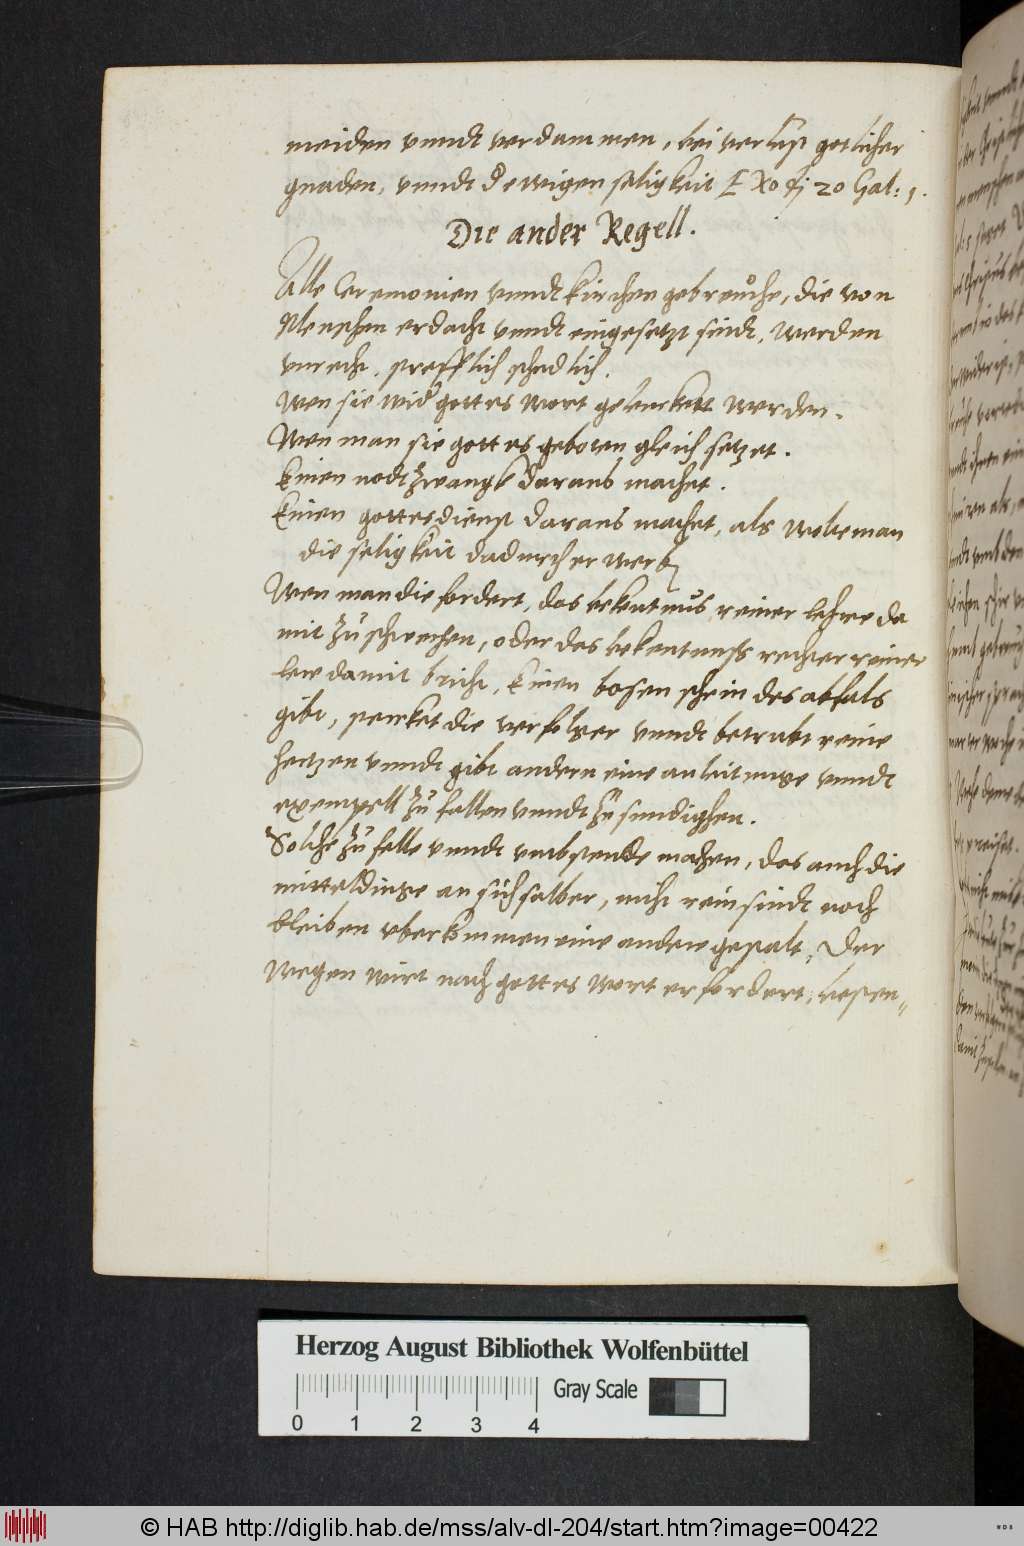 meiden vnndt verdammen, bei verlust gotlicher
gnaden, vnndt d ewigen seligkeit EXodj 20 Gal: 1.
Die ander Regell.
Alle Ceremonien vnndt kirchengebreuche, die von
Menschen erdacht vnndt eingesetzt sindt, werden
vnrecht, strefflich schedlich.
Wen sie wid gottes wort gelencket werden.
Wen man sie gottes geboten gleich setzet.
Einen nodtzwangk daraus machet.
Einen gottesdienst daraus machet, als wolte man
die seligkeit dadurch erwerben
Wen man die fordert, das bekentnus reiner lehre da
mit zu schwechen, oder das bekentnuss rechter reiner
lere damit bricht, Einen bosen schein des abfals
gibt, stercket die verfolger vnndt betrubt reine
hertzen vnndt gibt andern eine anleitunge vnndt
exempell zu fallen vnndt zu sundighen.
Solche zufelle vnndt vmbstende machen, das auch die
mitteldinge an sich selber, nicht rein sindt noch
bleiben vberkommen eine andere gestalt, Der
Wegen wirt nach gottes wort erfordert, besten=
Herzog August Bibliothek Wolfenbüttel
Gray Scale
0 1 2 3 4
© HAB http://diglib.hab.de/mss/alv-dl-204/start.htm?image=00422